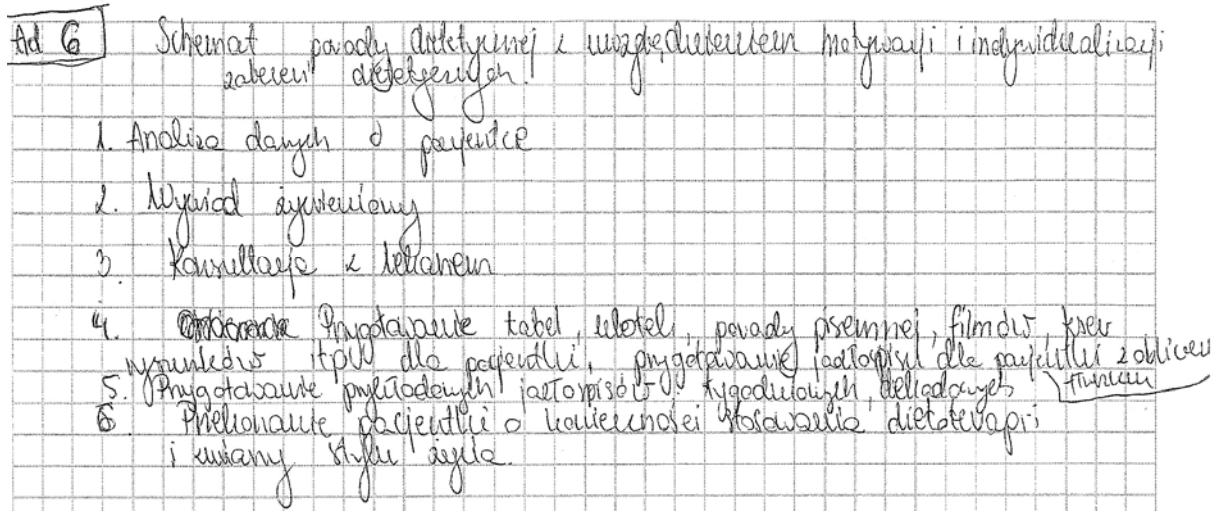 Ad 6 Schemat porady dietetycznej z uwzględnieniem motywacji i indywidualizacji
zaleceń dietetycznych.
1. Analiza danych o pacjentce
2. Wywiad żywieniowy
3. Konsultacja z lekarzem
4. Przygotowanie tabel, ulotek, porady pisemnej, filmów,
rysunków itp. dla pacjentki, przygotowanie jadłospisu dla pacjentki z obliczen
5. Przygotowanie przykładowych jadłospisów tygodniowych, dekadowych
6. Przekonanie pacjentki o konieczności stosowania dietoterapii
i zmiany stylu życia.